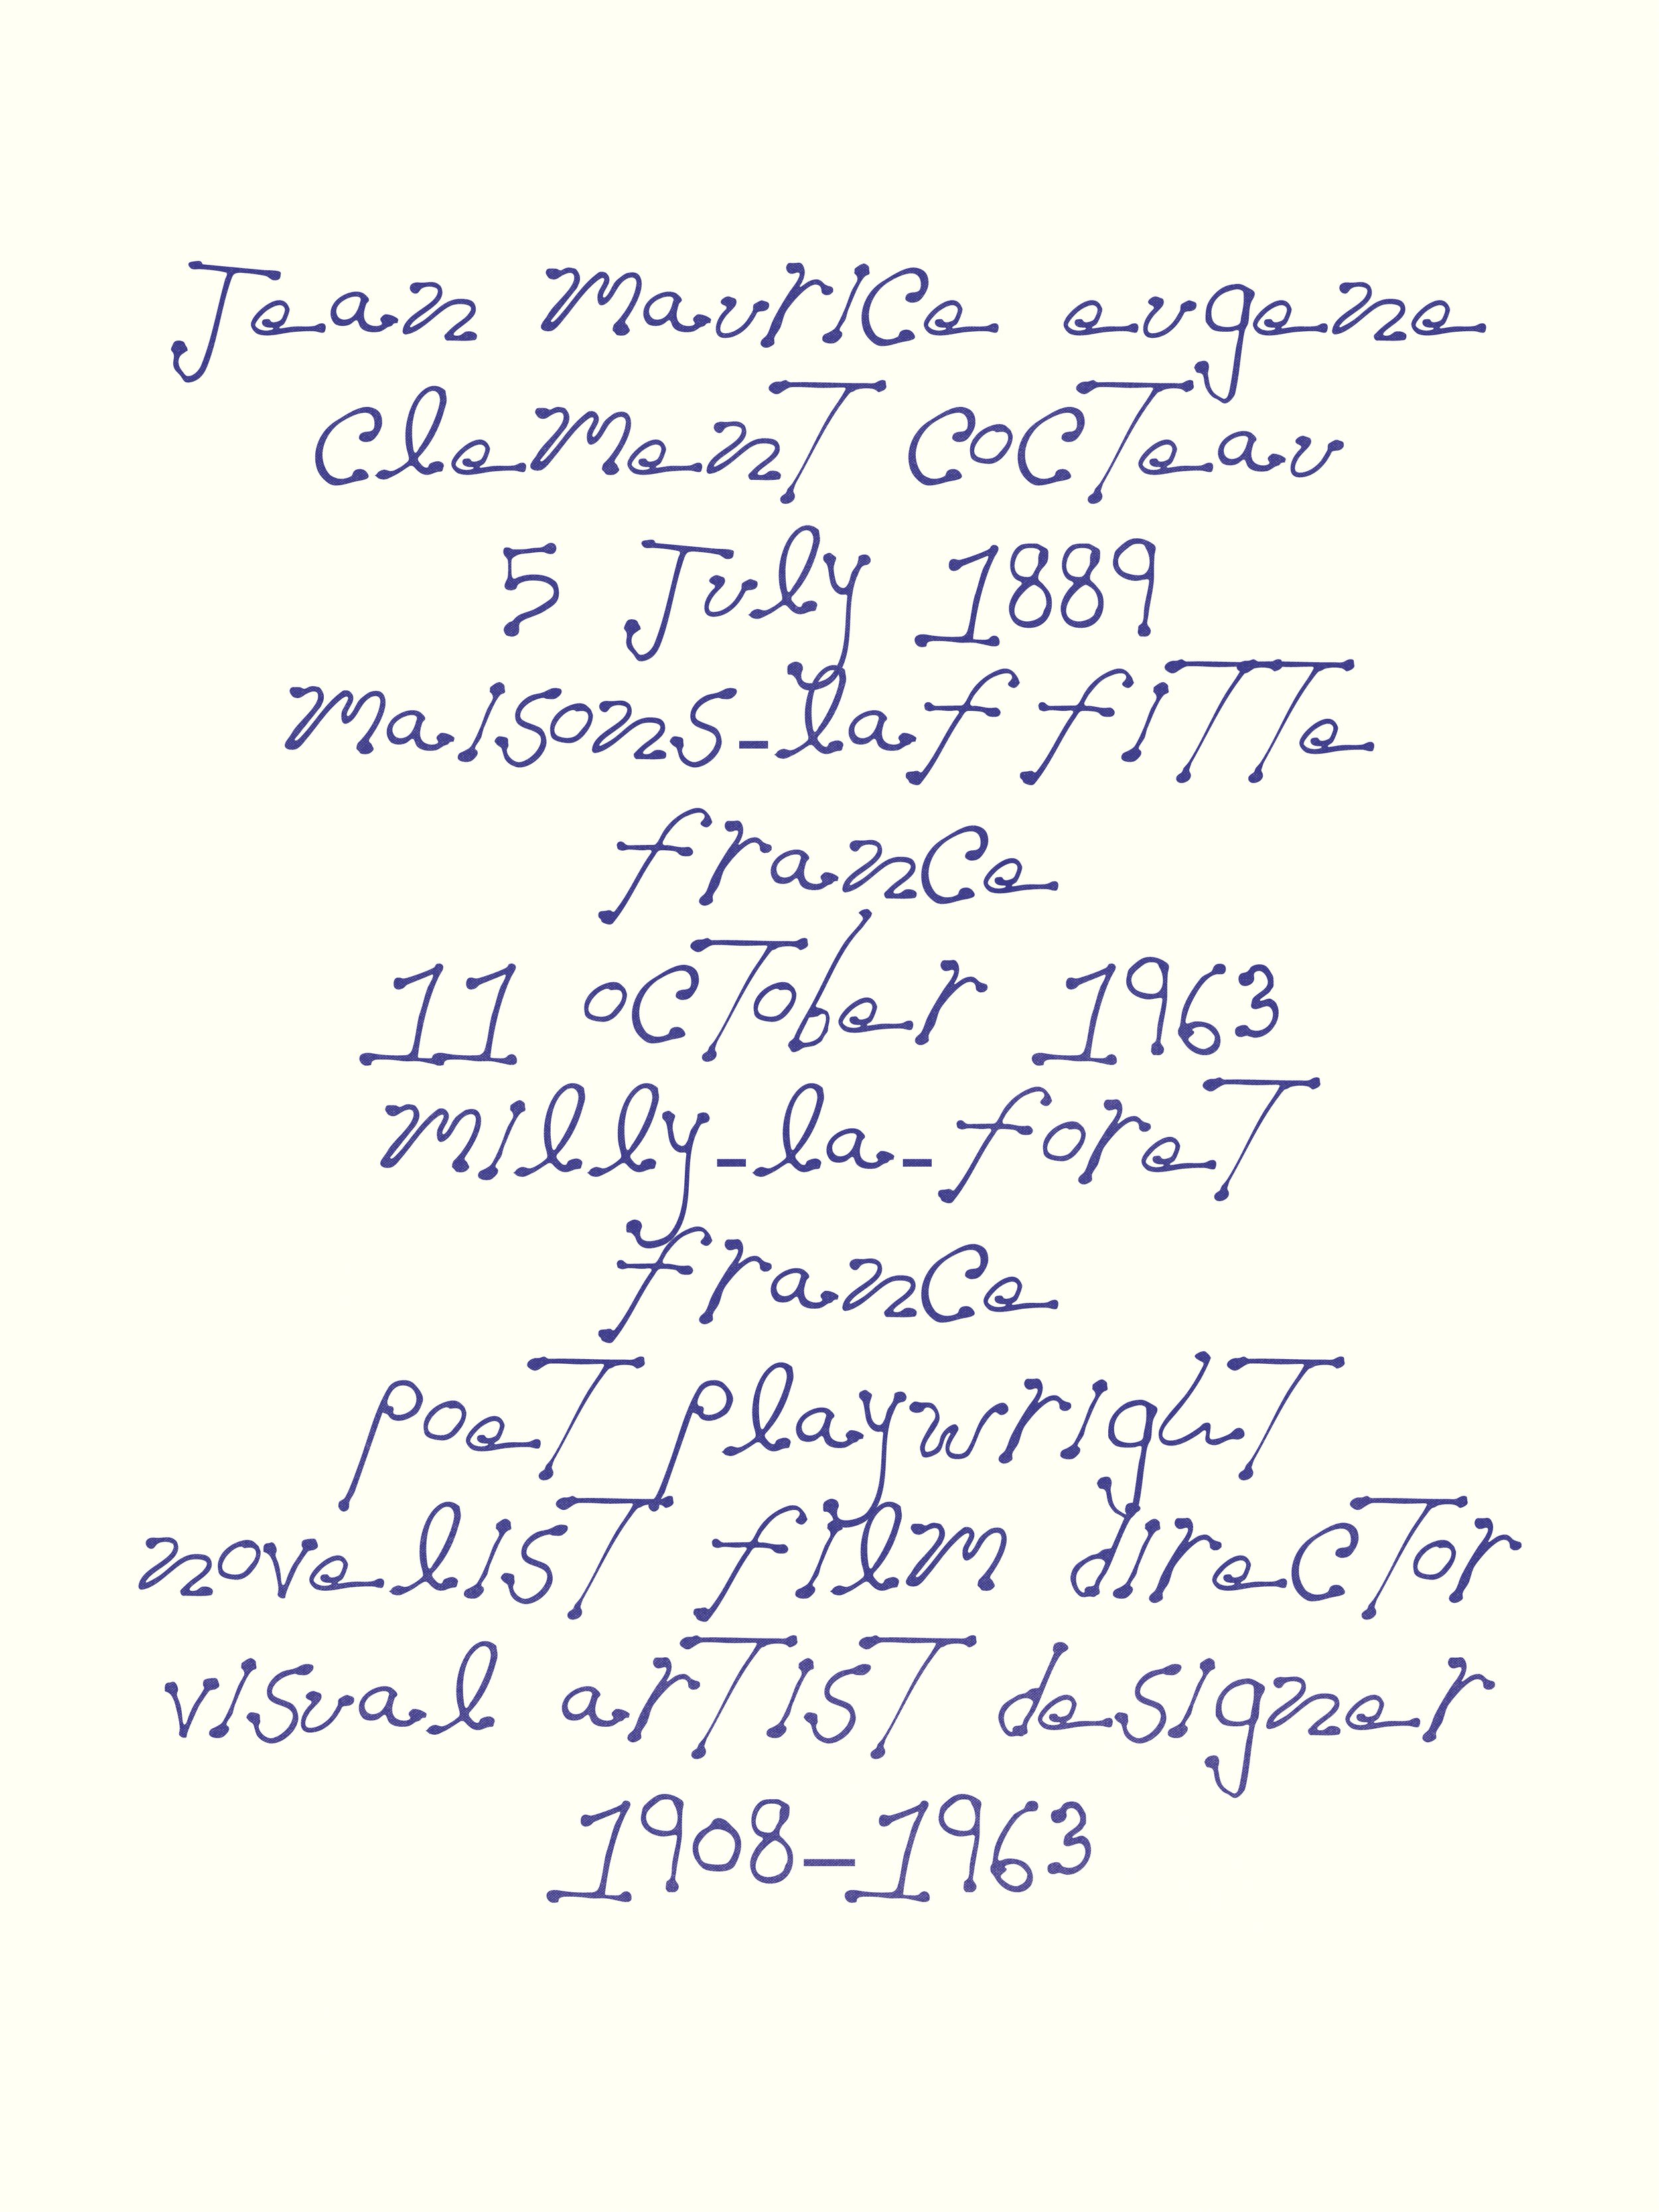 Jean Maurice eugene
Clement Cocteau
5 July 1889
Maisons-laffitte
france
11 october 1963
Milly-la-foret
france
poet playwright
novelist film director
visual artist designer
1908–1963